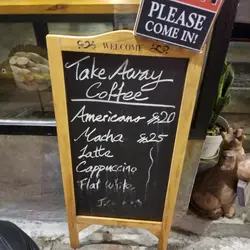 PLEASE
COME IN!
WELCOME
Take Away
Coffee
Americano 20
Macha 25
Latte
Cappuccino
Flat White